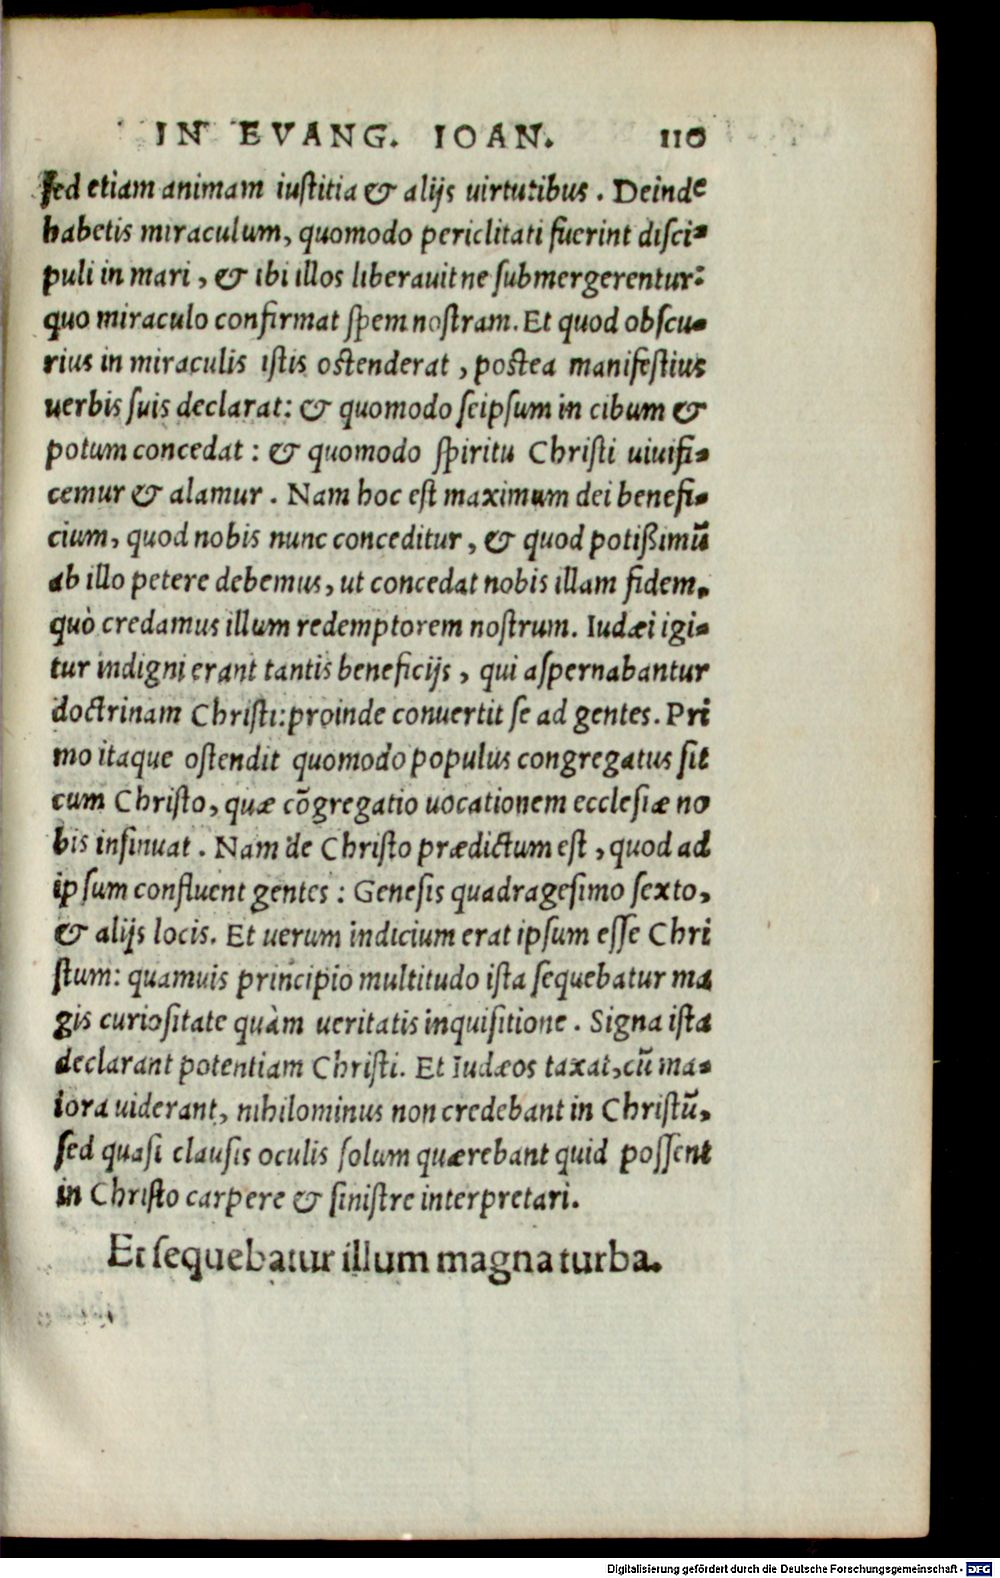 IN EVANG. IOAN. 110
ſed etiam animam iuſtitia & alijs uirtutibus. Deinde
habetis miraculum, quomodo periclitati fuerint diſci-
puli in mari, & ibi illos liberauit ne ſubmergerentur:
quo miraculo confirmat ſpem noſtram. Et quod obſcu-
rius in miraculis iſtis oſtenderat, poſtea manifeſtius
uerbis ſuis declarat: & quomodo ſeipſum in cibum &
potum concedat: & quomodo ſpiritu Chriſti uiuifi-
cemur & alamur. Nam hoc eſt maximum dei benefi-
cium, quod nobis nunc conceditur, & quod potißimũ
ab illo petere debemus, ut concedat nobis illam fidem,
quò credamus illum redemptorem noſtrum. Iudæi igi-
tur indigni erant tantis beneficijs, qui aſpernabantur
doctrinam Chriſti: proinde conuertit ſe ad gentes. Pri
mo itaque oſtendit quomodo populus congregatus ſit
cum Chriſto, quæ cõgregatio uocationem eccleſiæ no
bis inſinuat. Nam de Chriſto prædictum eſt, quod ad
ipſum confluent gentes: Geneſis quadrageſimo ſexto,
& alijs locis. Et uerum indicium erat ipſum eſſe Chri
ſtum: quamuis principio multitudo iſta ſequebatur ma
gis curioſitate quàm ueritatis inquiſitione. Signa iſta
declarant potentiam Chriſti. Et Iudæos taxat, cũ ma-
iora uiderant, nihilominus non credebant in Chriſtũ,
ſed quaſi clauſis oculis ſolum quærebant quid poſſent
in Chriſto carpere & ſiniſtre interpretari.
Et ſequebatur illum magna turba.
Digitalisierung gefördert durch die Deutsche Forschungsgemeinschaft - DFG